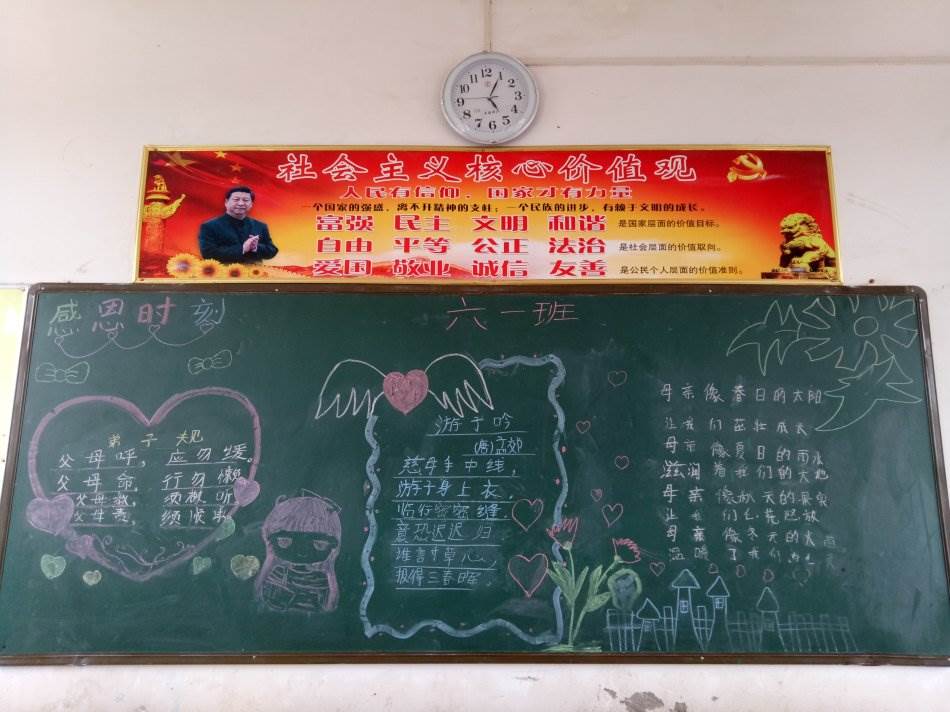 12
1
2
3
4
5
6
7
8
9
10
11
社会主义核心价值观
人民有信仰，国家才有力量
一个国家的强盛，离不开精神的支柱；一个民族的进步，有赖于文明的成长。
富强 民主 文明 和谐 是国家层面的价值目标。
自由 平等 公正 法治 是社会层面的价值取向。
爱国 敬业 诚信 友善 是公民个人层面的价值准则。
感恩时刻
六一班
弟子规
父母呼，应勿缓。
父母命，行勿懒
父母教，须敬听
父母责，须顺承
游子吟
(唐)孟郊
慈母手中线，
游子身上衣，
临行密密缝，
意恐迟迟归
谁言寸草心，
报得三春晖
母亲像春日的太阳
让我们茁壮成长
母亲像夏日的雨水
滋润着我们的大地
母亲像秋天的果实
让我们心花怒放
母亲像冬天的火
温暖了我们